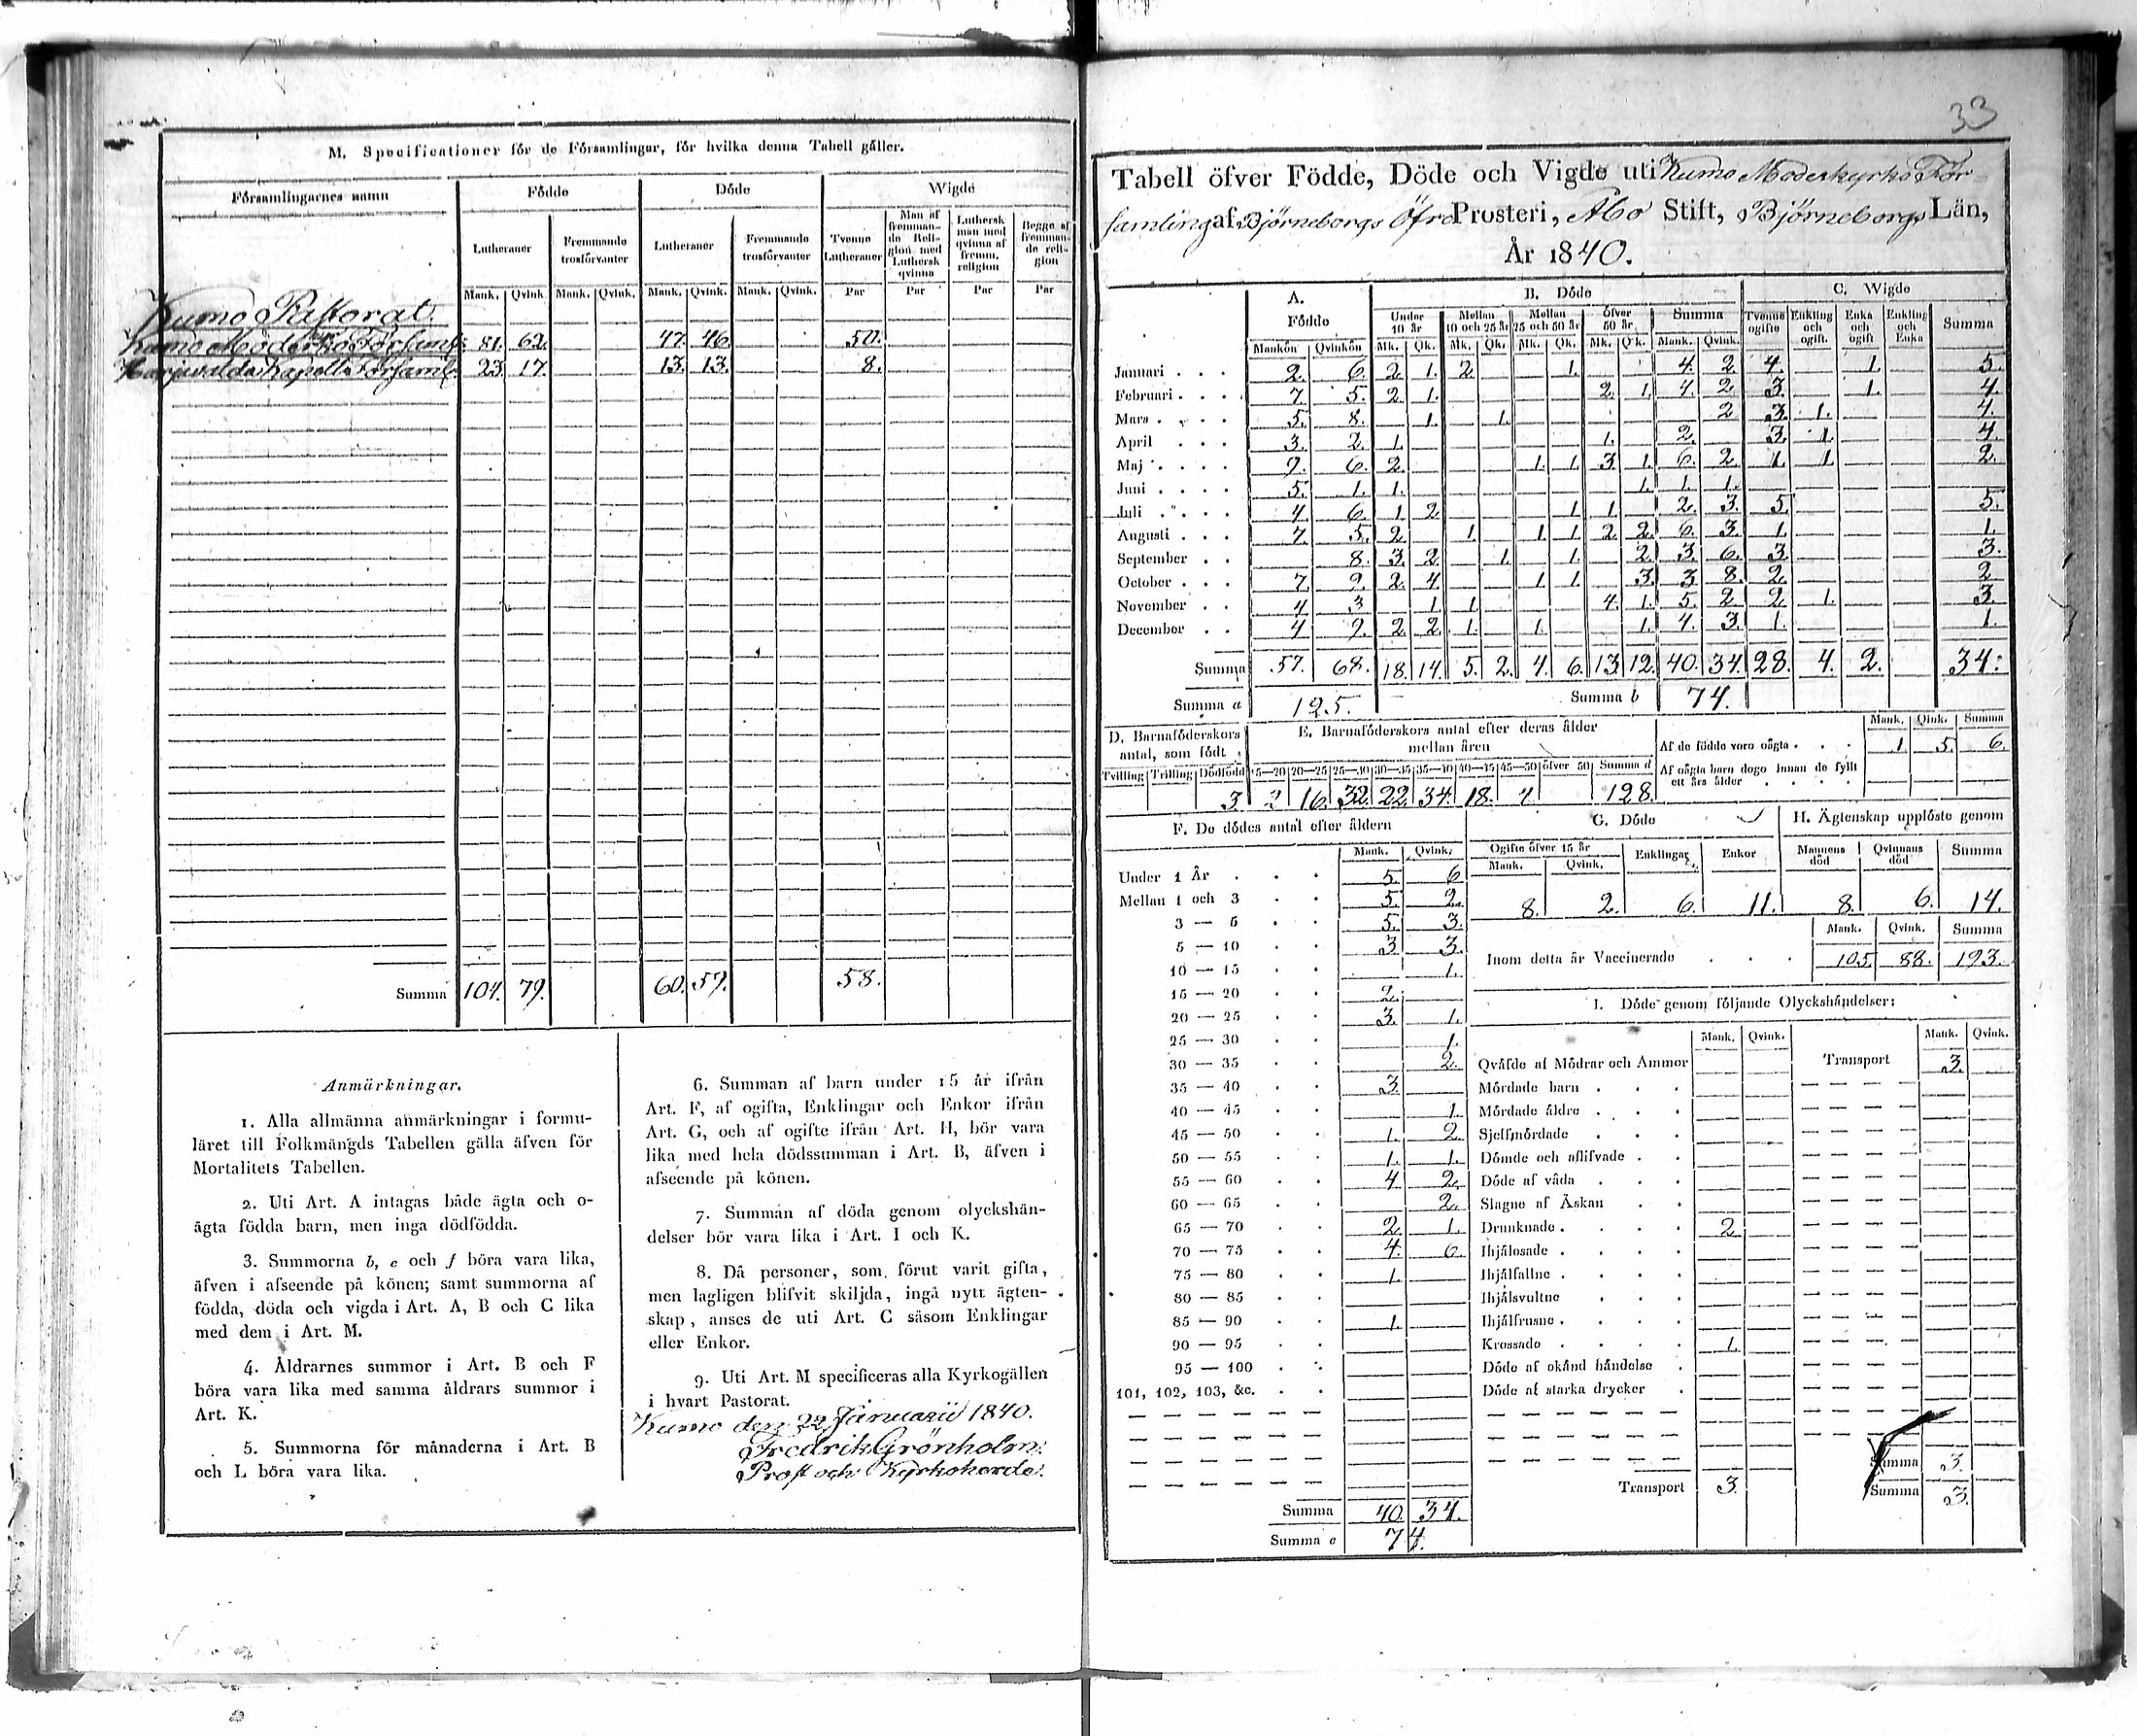 M. Specificationer för de Församlingar, för hvilka denna Tabell gäller.
Församlingarnes namn Födde Döde Wigde
Lutheraner Fremmande trosförvanter Lutheraner Fremmande trosförvanter Tvenne Lutheraner Man af fremmande Religion med Luthersk qvinna Luthersk man med qvinna af fremm. religion Begge af fremmande religion
Mank. Qvink. Mank. Qvink. Mank. Qvink. Mank. Qvink. Par Par Par Par
Kumo Pastorat.
Kumo Församl: 81. 62. 47. 46. 50.
Kapells Församl: 23. 17. 13. 13. 8.
Summa 104. 79. 60. 59. 58.
Anmärkningar.
1. Alla allmänna anmärkningar i formu-
läret till Folkmängds Tabellen gälla äfven för
Mortalitets Tabellen.
2. Uti Art. A intagas både ägta och o-
ägta födda barn, men inga dödfödda.
3. Summorna b, e och f böra vara lika,
äfven i afseende på könen; samt summorna af
födda, döda och vigda i Art. A, B och C lika
med dem i Art. M.
4. Åldrarnes summor i Art. B och F
böra vara lika med samma åldrars summor i
Art. K.
5. Summorna för månaderna i Art. B
och L böra vara lika.
6. Summan af barn under 15 år ifrån
Art. F, af ogifta, Enklingar och Enkor ifrån
Art. G, och af ogifte ifrån Art. H, bör vara
lika med hela dödssumman i Art. B, äfven i
afseende på könen.
7. Summan af döda genom olyckshän-
delser bör vara lika i Art. I och K.
8. Då personer, som förut varit gifta,
men lagligen blifvit skiljda, ingå nytt ägten-
skap, anses de uti Art. C såsom Enklingar
eller Enkor.
9. Uti Art. M specificeras alla Kyrkogällen
i hvart Pastorat.
Kumo den 22 Januarii 1840.
Fredrik Grönholm.
Prost och Kyrkoherde.
33
Tabell öfver Födde, Döde och Vigde uti Kumo Moderkyrko För-
samling af Björneborgs Öfre Prosteri, Åbo Stift, Björneborgs Län,
År 1840.
A. Födde B. Döde C. Wigde
Under 10 år Mellan 10 och 25 år Mellan 25 och 50 år Öfver 50 år Summa Tvenne ogifte Enkling och ogift. Enka och ogift Enkling och Enka Summa
Mankön Qvinkön Mk. Qk. Mk. Qk. Mk. Qk. Mk. Qk. Mank. Qvink.
Januari 2. 6. 2. 1. 2. 1. 4. 2. 4. 1. 5.
Februari 7. 5. 2. 1. 2. 1. 4. 2. 3. 1. 4.
Mars 5. 8. 1. 1. 2 3. 1. 4.
April 3. 2. 1. 1. 2. 3. 1. 4.
Maj 9. 6. 2. 1. 1. 3. 1. 6. 2. 1. 1. 2.
Juni 5. 1. 1. 1. 1. 1.
Juli 4 6. 1 2. 1 1. 2. 3. 5. 5.
Augusti 7. 5. 2. 1. 1. 1. 2. 2. 6. 3. 1. 1.
September 8. 3. 2. 1. 1. 2. 3. 6. 3. 3.
October 7. 9. 2. 4. 1. 1. 3. 3. 8. 2. 2
November 4 3 1 1. 4. 1. 5. 2 2. 1. 3.
December 4 9. 2. 2. 1. 1. 1. 4. 3. 1. 1.
Summa 57. 68. 18. 14. 5. 2. 4. 6. 13. 12. 40. 34. 28. 4. 2. 34.
Summa a 125. Summa b 74.
D. Barnaföderskors antal, som födt E. Barnaföderskors antal efter deras ålder mellan åren
Mank. Qvink. Summa
Af de födde voro oägta 1. 5. 6.
Af oägta barn dogo innan de fyllt ett års ålder
Tvilling Trilling Dödfödd 15—20 20—25 25—30 30—35 35—40 40—45 45—50 öfver 50 Summa d
3. 2 16. 32. 22. 34. 18. 4 128.
F. De dödes antal efter åldern
Mank. Qvink.
Under 1 År 5. 6
Mellan 1 och 3 5. 2.
3 — 5 5. 3.
5 — 10 3 3.
10 — 15 1.
15 — 20 2.
20 — 25 3. 1.
25 — 30 1.
30 — 35 2.
35 — 40 3.
40 — 45 1.
45 — 50 1. 2.
50 — 55 1. 1.
55 — 60 4. 2.
60 — 65 2.
65 — 70 2. 1.
70 — 75 4. 6.
75 — 80 1.
80 — 85
85 — 90 1.
90 — 95
95 — 100
101, 102, 103, &c.
Summa 40. 34.
Summa e 74.
G. Döde H. Ägtenskap upplöste genom
Ogifte öfver 15 år Enklingar Enkor Mannens död Qvinnans död Summa
Mank. Qvink.
8. 2. 6. 11. 8. 6. 14.
Mank. Qvink. Summa
Inom detta år Vaccinerade 105. 88. 193.
I. Döde genom följande Olyckshändelser:
Mank. Qvink. Mank. Qvink.
Qväfde af Mödrar och Ammor Transport 3.
Mördade barn
Mördade äldre
Sjelfmördade
Dömde och aflifvade
Döde af våda
Slagne af Åskan
Drunknade 2
Ihjälosade
Ihjälfallne
Ihjälsvultne
Ihjälfrusne
Krossade 1.
Döde af okänd händelse
Döde af starka drycker
Summa 3.
Transport 3. Summa 3.